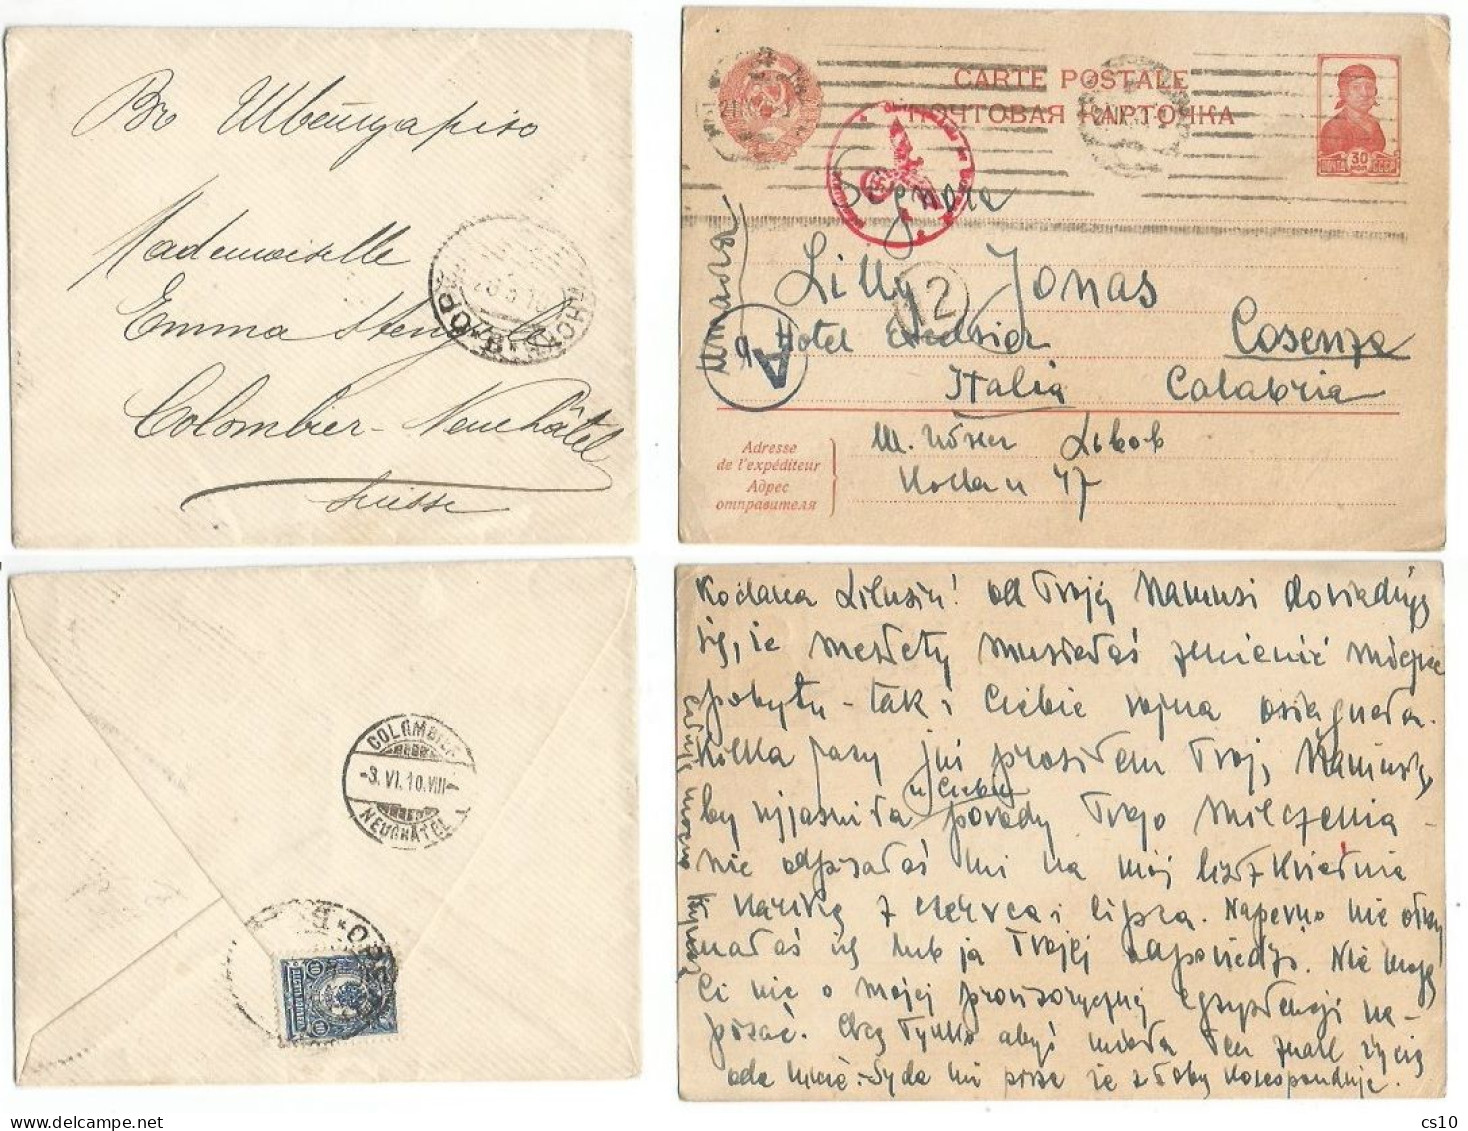 Во Швейцарію
Mademoiselle
Emma
Colombier - Neuchâtel
Suisse
CARTE POSTALE
ПОЧТОВАЯ КАРТОЧКА
30
ПОЧТА СССР
Signora
Lilly Jonas
12
A
Hotel Cosenza
Italia Calabria
Италия
Adresse
de l'expéditeur
Адрес
отправителя
47
COLOMBIER
-3.VI.10.VIII-
NEUCHÂTEL
Kochana Lilusiu! od Twojej Mamusi dowiaduję
się, że niestety musiałaś zmienić miejsce
pobytu - tak i Ciebie wojna osiągnęła.
Kilka razy już prosiłem Twoją Mamusię,
by wyjaśniła u Ciebie powody Twego milczenia -
nie odpisałaś mi na mój list z kwietnia
i kartkę z czerwca i lipca. Napewno nie otrzy
małaś ich lub ja Twojej odpowiedzi. Nie mogę
Ci nic o mojej prowizorycznej egzystencji na-
pisać. Chcę tylko abyś miała ten znak życia
ode mnie. Syda mi pisze że z Tobą koresponduje.